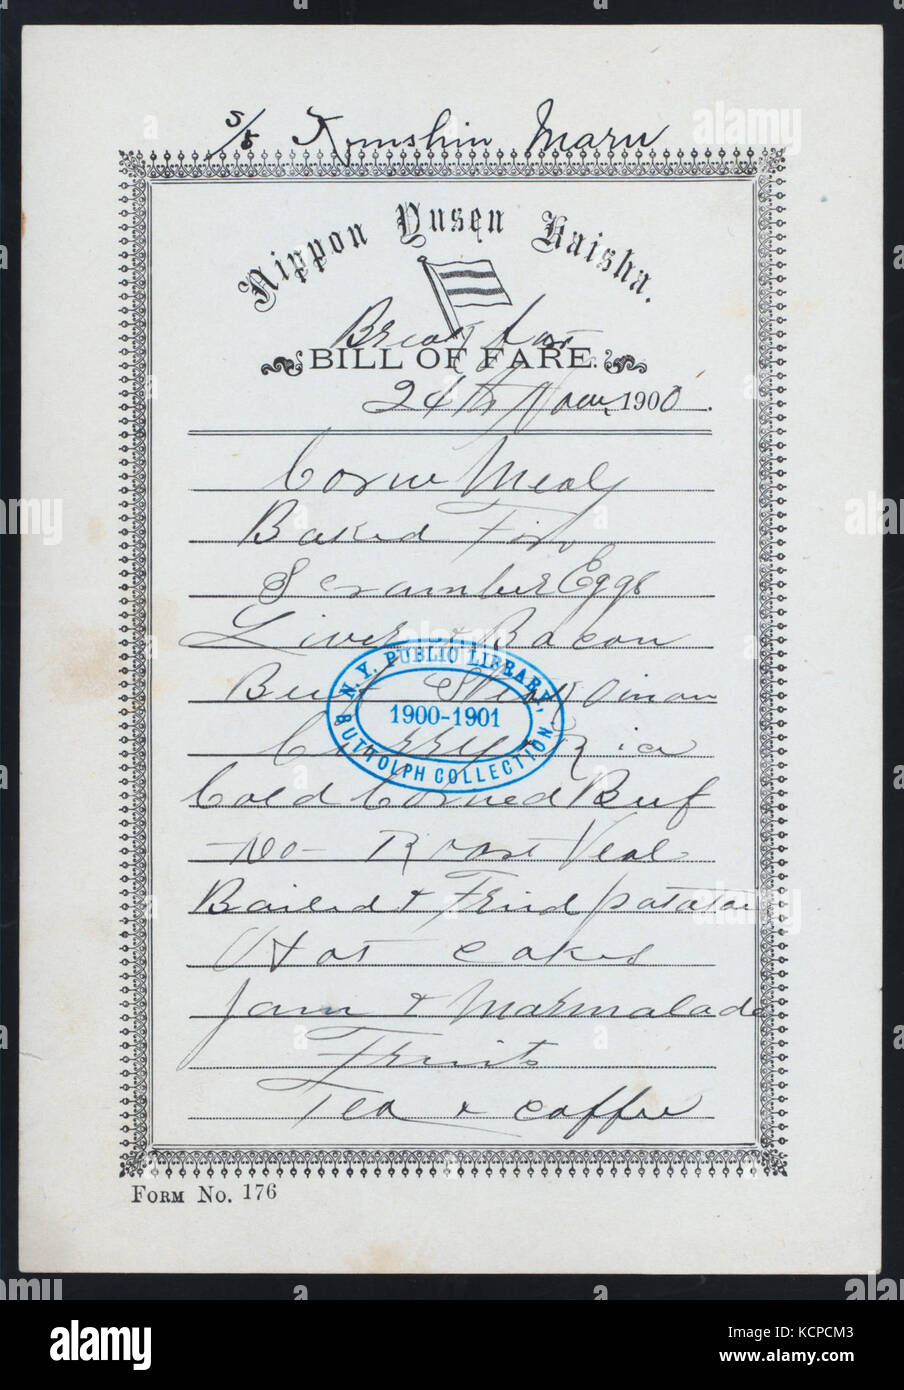 S/S Kinshin Maru
Nippon Yusen Kaisha.
Breakfast
BILL OF FARE.
24th Nov, 1900.
Corne Meal
Baked
Scramber Eggs
Liver & Bacon
Onion
Curry & Rice
Cold Corned Buf
-do- Roast Veal
Boiled & Fried potatoe
Hot cakes
Jam & Marmalade
Fruits
Tea & coffee
N.Y. PUBLIC LIBRARY,
1900-1901
BUTTOLPH COLLECTION.
FORM NO. 176
alamy
Image ID: KCPCM3
www.alamy.com